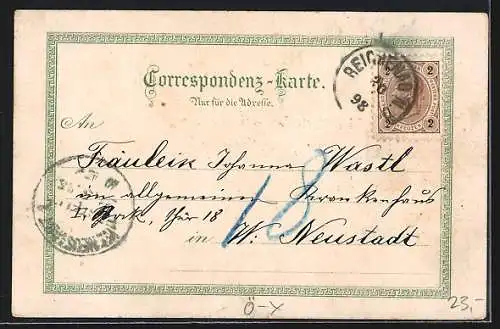 Correspondenz-Karte.
Nur für die Adresse.
An
Fräulein Johanna Wastl
im allgemeinen Krankenhaus
I. Stock, Thür 18
in W. Neustadt
18
2 2
2 2
REICHENAU
98
Ö-Y
23,-